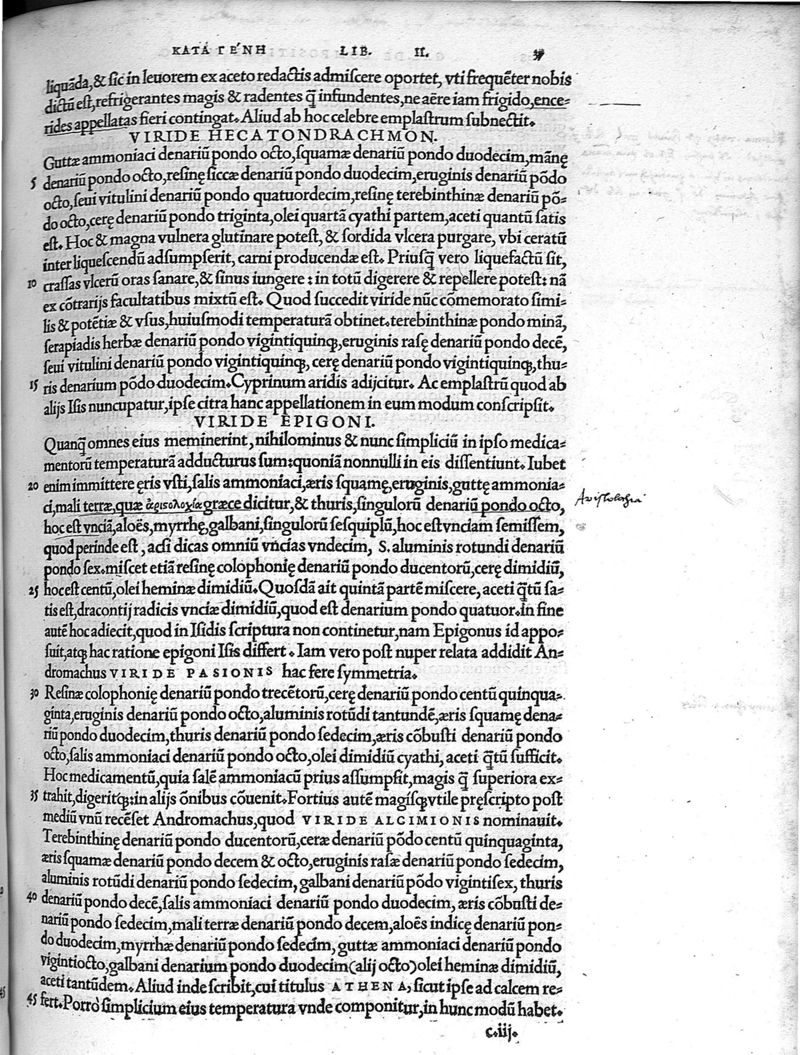 ΚΑΤΑ ΓΕΝΗ LIB. II.
liquãda,& sic in leuorem ex aceto redactis admiscere oportet, vti frequẽter nobis
dictũ est,refrigerantes magis & radentes q̃ infundentes,ne aëre iam frigido,ence=
rides appellatas fieri contingat. Aliud ab hoc celebre emplastrum subnectit.
VIRIDE HECATONDRACHMON.
Guttæ ammoniaci denariũ pondo octo,squamæ denariũ pondo duodecim,mãnę
5 denariũ pondo octo,resinę siccæ denariũ pondo duodecim,eruginis denariũ põdo
octo,seui vitulini denariũ pondo quatuordecim,resinę terebinthinæ denariũ põ=
do octo,cerę denariũ pondo triginta,olei quartã cyathi partem,aceti quantũ satis
est. Hoc & magna vulnera glutinare potest, & sordida vlcera purgare, vbi ceratũ
inter liquescendũ adsumpserit, carni producendæ est. Priusq̃ vero liquefactũ sit,
10 crassas vlcerũ oras sanare,& sinus iungere: in totũ digerere & repellere potest: nã
ex cõtrarijs facultatibus mixtũ est. Quod succedit viride nũc cõmemorato simi=
lis & potẽtiæ & vsus,huiusmodi temperaturã obtinet.terebinthinæ pondo minã,
serapiadis herbæ denariũ pondo vigintiquinq;,eruginis rasę denariũ pondo decẽ,
seui vitulini denariũ pondo vigintiquinq;, cerę denariũ pondo vigintiquinq;,thu=
15 ris denarium põdo duodecim.Cyprinum aridis adijcitur. Ac emplastrũ quod ab
alijs Isis nuncupatur,ipse citra hanc appellationem in eum modum conscripsit.
VIRIDE EPIGONI.
Quanq̃ omnes eius meminerint, nihilominus & nunc simpliciũ in ipso medica=
mentorũ temperaturã adducturus sum:quoniã nonnulli in eis dissentiunt. Iubet
20 enim immittere ęris vsti,salis ammoniaci,æris squamę,eruginis,guttę ammonia=
ci,mali terræ,quæ ἀριστολοχία græce dicitur,& thuris,singulorũ denariũ pondo octo,
hoc est vnciã,aloës,myrrhę,galbani,singulorũ sesquiplũ,hoc est vnciam semissem,
quod perinde est, acsi dicas omniũ vncias vndecim, S. aluminis rotundi denariũ
pondo sex.miscet etiã resinę colophonię denariũ pondo ducentorũ,cerę dimidiũ,
25 hoc est centũ,olei heminæ dimidiũ.Quosdã ait quintã partẽ miscere, aceti q̃tũ sa=
tis est,dracontij radicis vnciæ dimidiũ,quod est denarium pondo quatuor.in fine
autẽ hoc adiecit,quod in Isidis scriptura non continetur,nam Epigonus id appo=
suit,atq; hac ratione epigoni Isis differt. Iam vero post nuper relata addidit An=
dromachus VIRIDE PASIONIS hac fere symmetria.
30 Resinæ colophonię denariũ pondo trecẽtorũ,cerę denariũ pondo centũ quinqua=
ginta,eruginis denariũ pondo octo,aluminis rotũdi tantundẽ,æris squamę dena=
riũ pondo duodecim,thuris denariũ pondo sedecim,æris cõbusti denariũ pondo
octo,salis ammoniaci denariũ pondo octo,olei dimidiũ cyathi, aceti q̃tũ sufficit.
Hoc medicamentũ,quia salẽ ammoniacũ prius assumpsit,magis q̃ superiora ex=
35 trahit,digeritq;:in alijs õnibus cõuenit.Fortius autẽ magisq; vtile pręscripto post
mediũ vnũ recẽset Andromachus,quod VIRIDE ALCIMIONIS nominauit.
Terebinthinę denariũ pondo ducentorũ,ceræ denariũ põdo centũ quinquaginta,
æris squamæ denariũ pondo decem & octo,eruginis rasæ denariũ pondo sedecim,
aluminis rotũdi denariũ pondo sedecim, galbani denariũ põdo vigintisex, thuris
40 denariũ pondo decẽ,salis ammoniaci denariũ pondo duodecim, æris cõbusti de=
nariũ pondo sedecim,mali terræ denariũ pondo decem,aloës indicę denariũ pon=
do duodecim,myrrhæ denariũ pondo sedecim, guttæ ammoniaci denariũ pondo
vigintiocto,galbani denarium pondo duodecim(alij octo)olei heminæ dimidiũ,
aceti tantũdem. Aliud inde scribit,cui titulus ATHENA,sicut ipse ad calcem re=
45 fert.Porro simplicium eius temperatura vnde componitur,in hunc modũ habet.
c.iij.
Aristologia